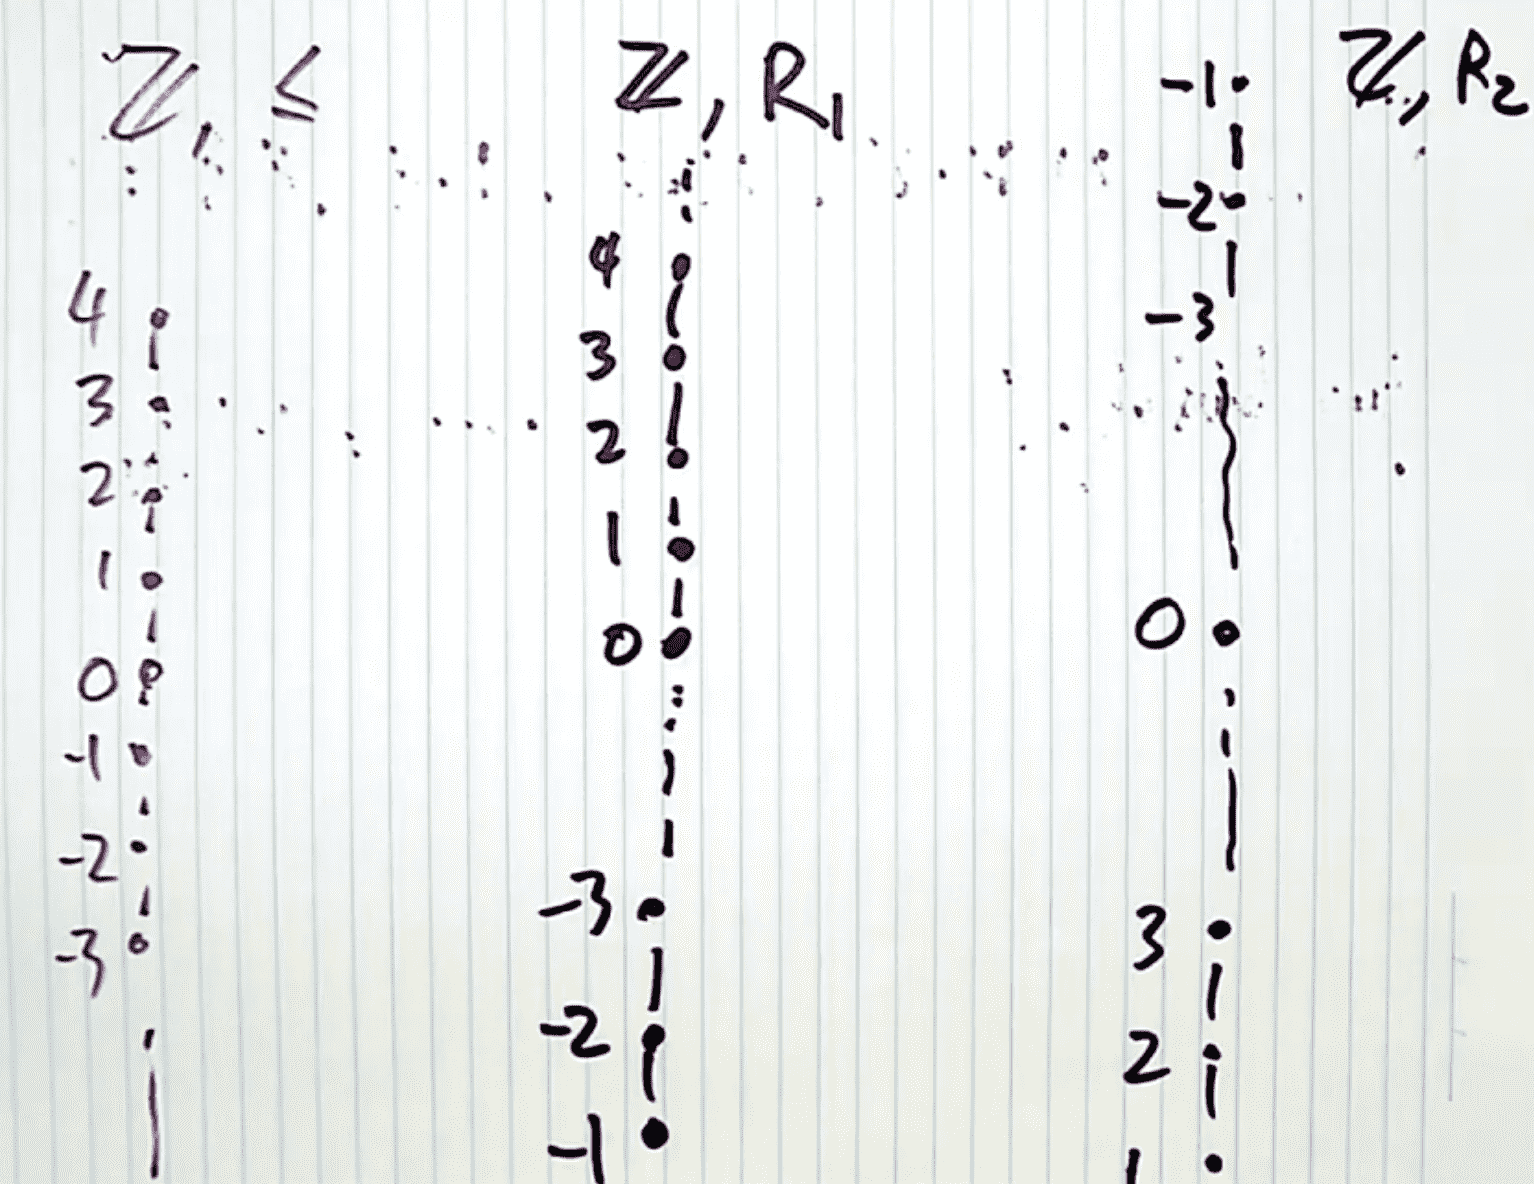 ℤ, ≤
4
3
2
1
0
-1
-2
-3
ℤ, R₁
4
3
2
1
0
-3
-2
-1
ℤ, R₂
-1
-2
-3
0
3
2
1